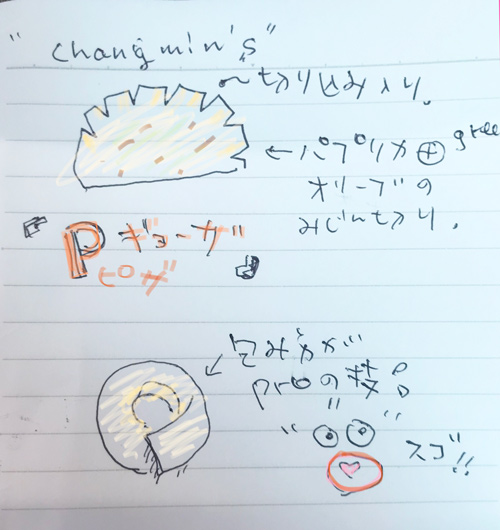 "changmin's"
切り込み入り。
←パプリカ⊕gree
オリーブの
みじん切り。
P ギョーザ
ピザ
包み方が
proの技。
スゴ!!